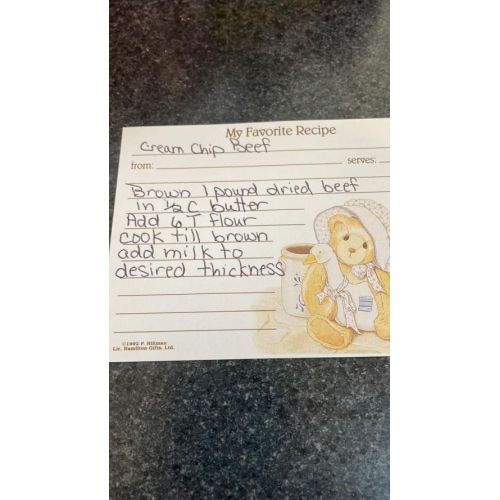 My Favorite Recipe
Cream Chip Beef
from: serves:
Brown 1 pound dried beef
in 1/2 C butter
Add 6 T flour
cook till brown
add milk to
desired thickness
©1992 P. Hillman
Lic. Hamilton Gifts, Ltd.